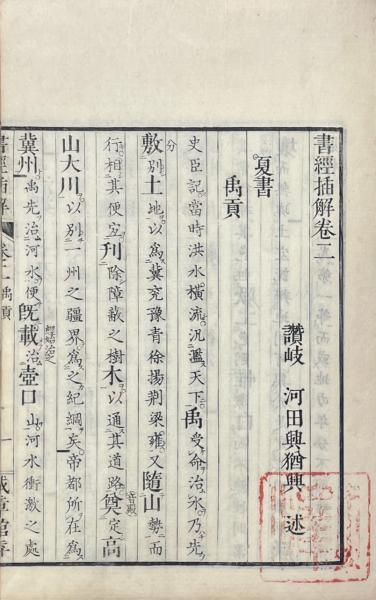 書經插解卷二
讚岐 河田興猶興 述
夏書
禹貢
史臣記當時洪水橫流汎濫天下禹受命治水乃先
分
敷別土地以爲冀兗豫青徐揚荊梁雍又隨山勢而
行相其便宜刊除障蔽之樹木以通其道路奠定高
音殿
山大川以別一州之疆界爲之紀綱矣帝都所在爲
冀州禹先治河水便旣載治壺口山河水衝激之處
經始治之
書經插解 卷二 禹貢 一